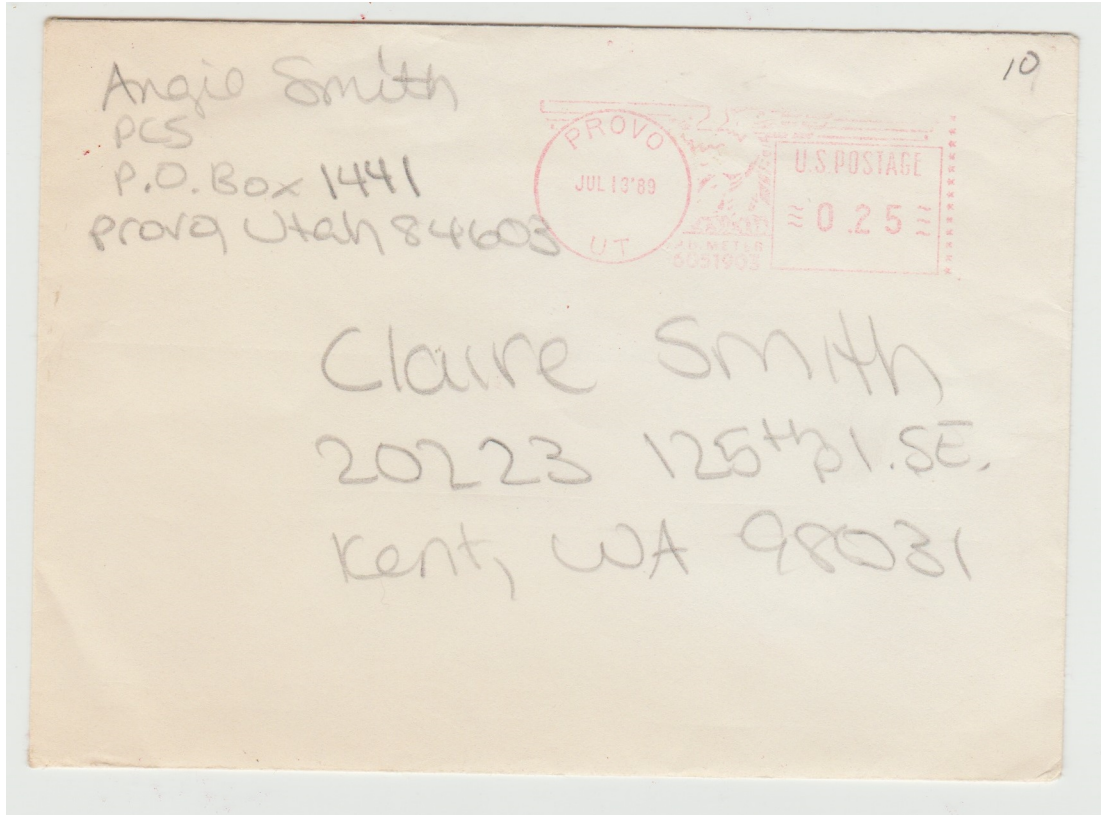 Angie Smith
PCS
P.O. Box 1441
Provo, Utah 84603
10
PROVO
JUL 13'89
UT
U.S. POSTAGE
0.25
METER
6051903
Claire Smith
20223 125th pl. SE.
Kent, WA 98031